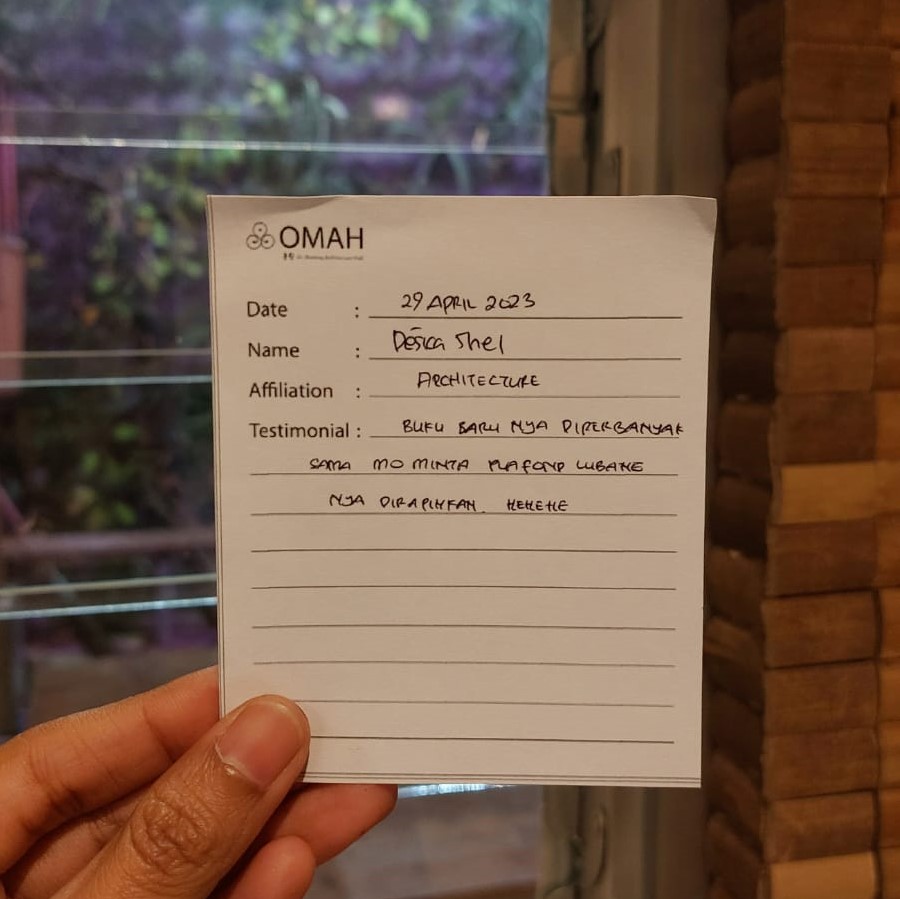 OMAH
Date : 29 APRIL 2023
Name : Desica Shel
Affiliation : ARCHITECTURE
Testimonial : BUKU BARU NYA DIPERBANYAK
SAMA MO MINTA PLAFOND LUBANE
NYA DIRAPIHKAN. HEHEHE